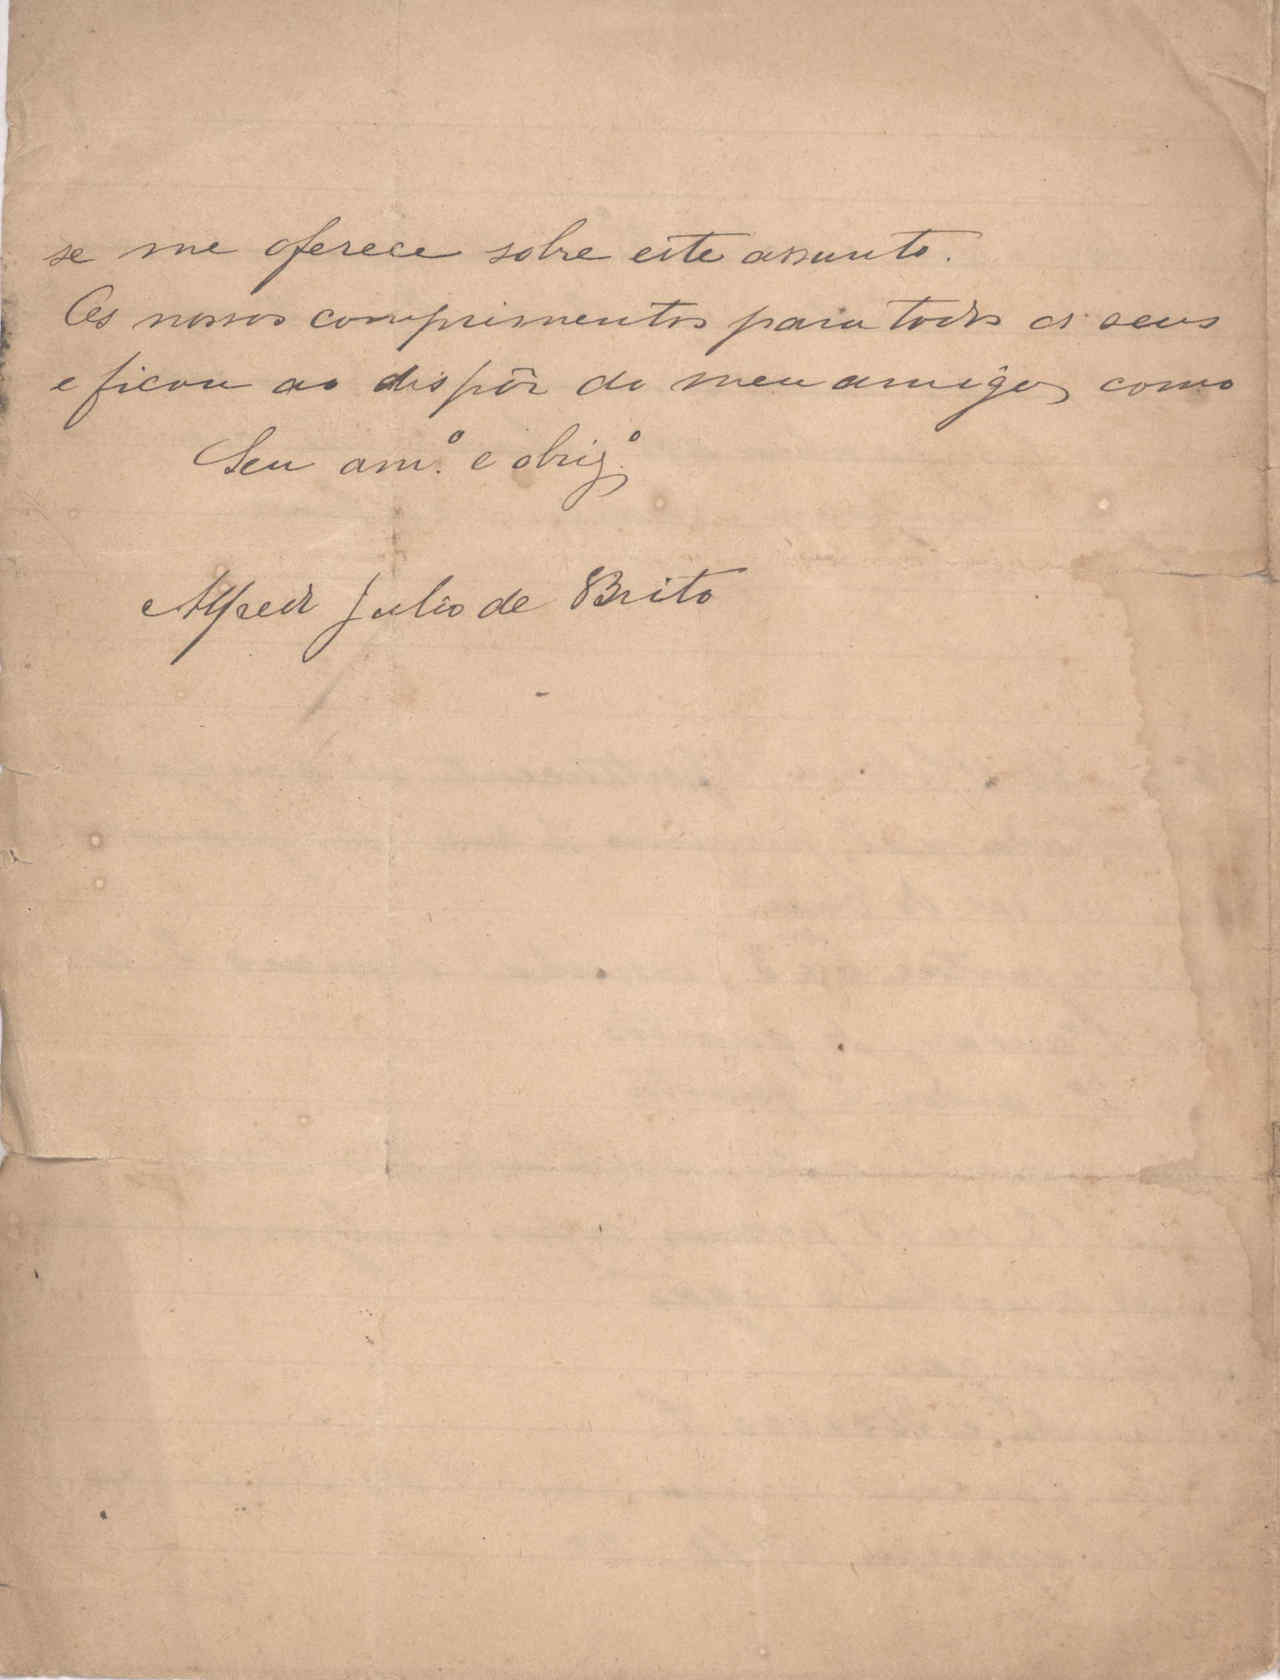 se me oferece sobre este assunto.
Os nossos comprimentos para todos os seus
e ficou ao dispôr do meu amigo, como
Seu am.º e obrig.º
Alfredo Julio de Brito